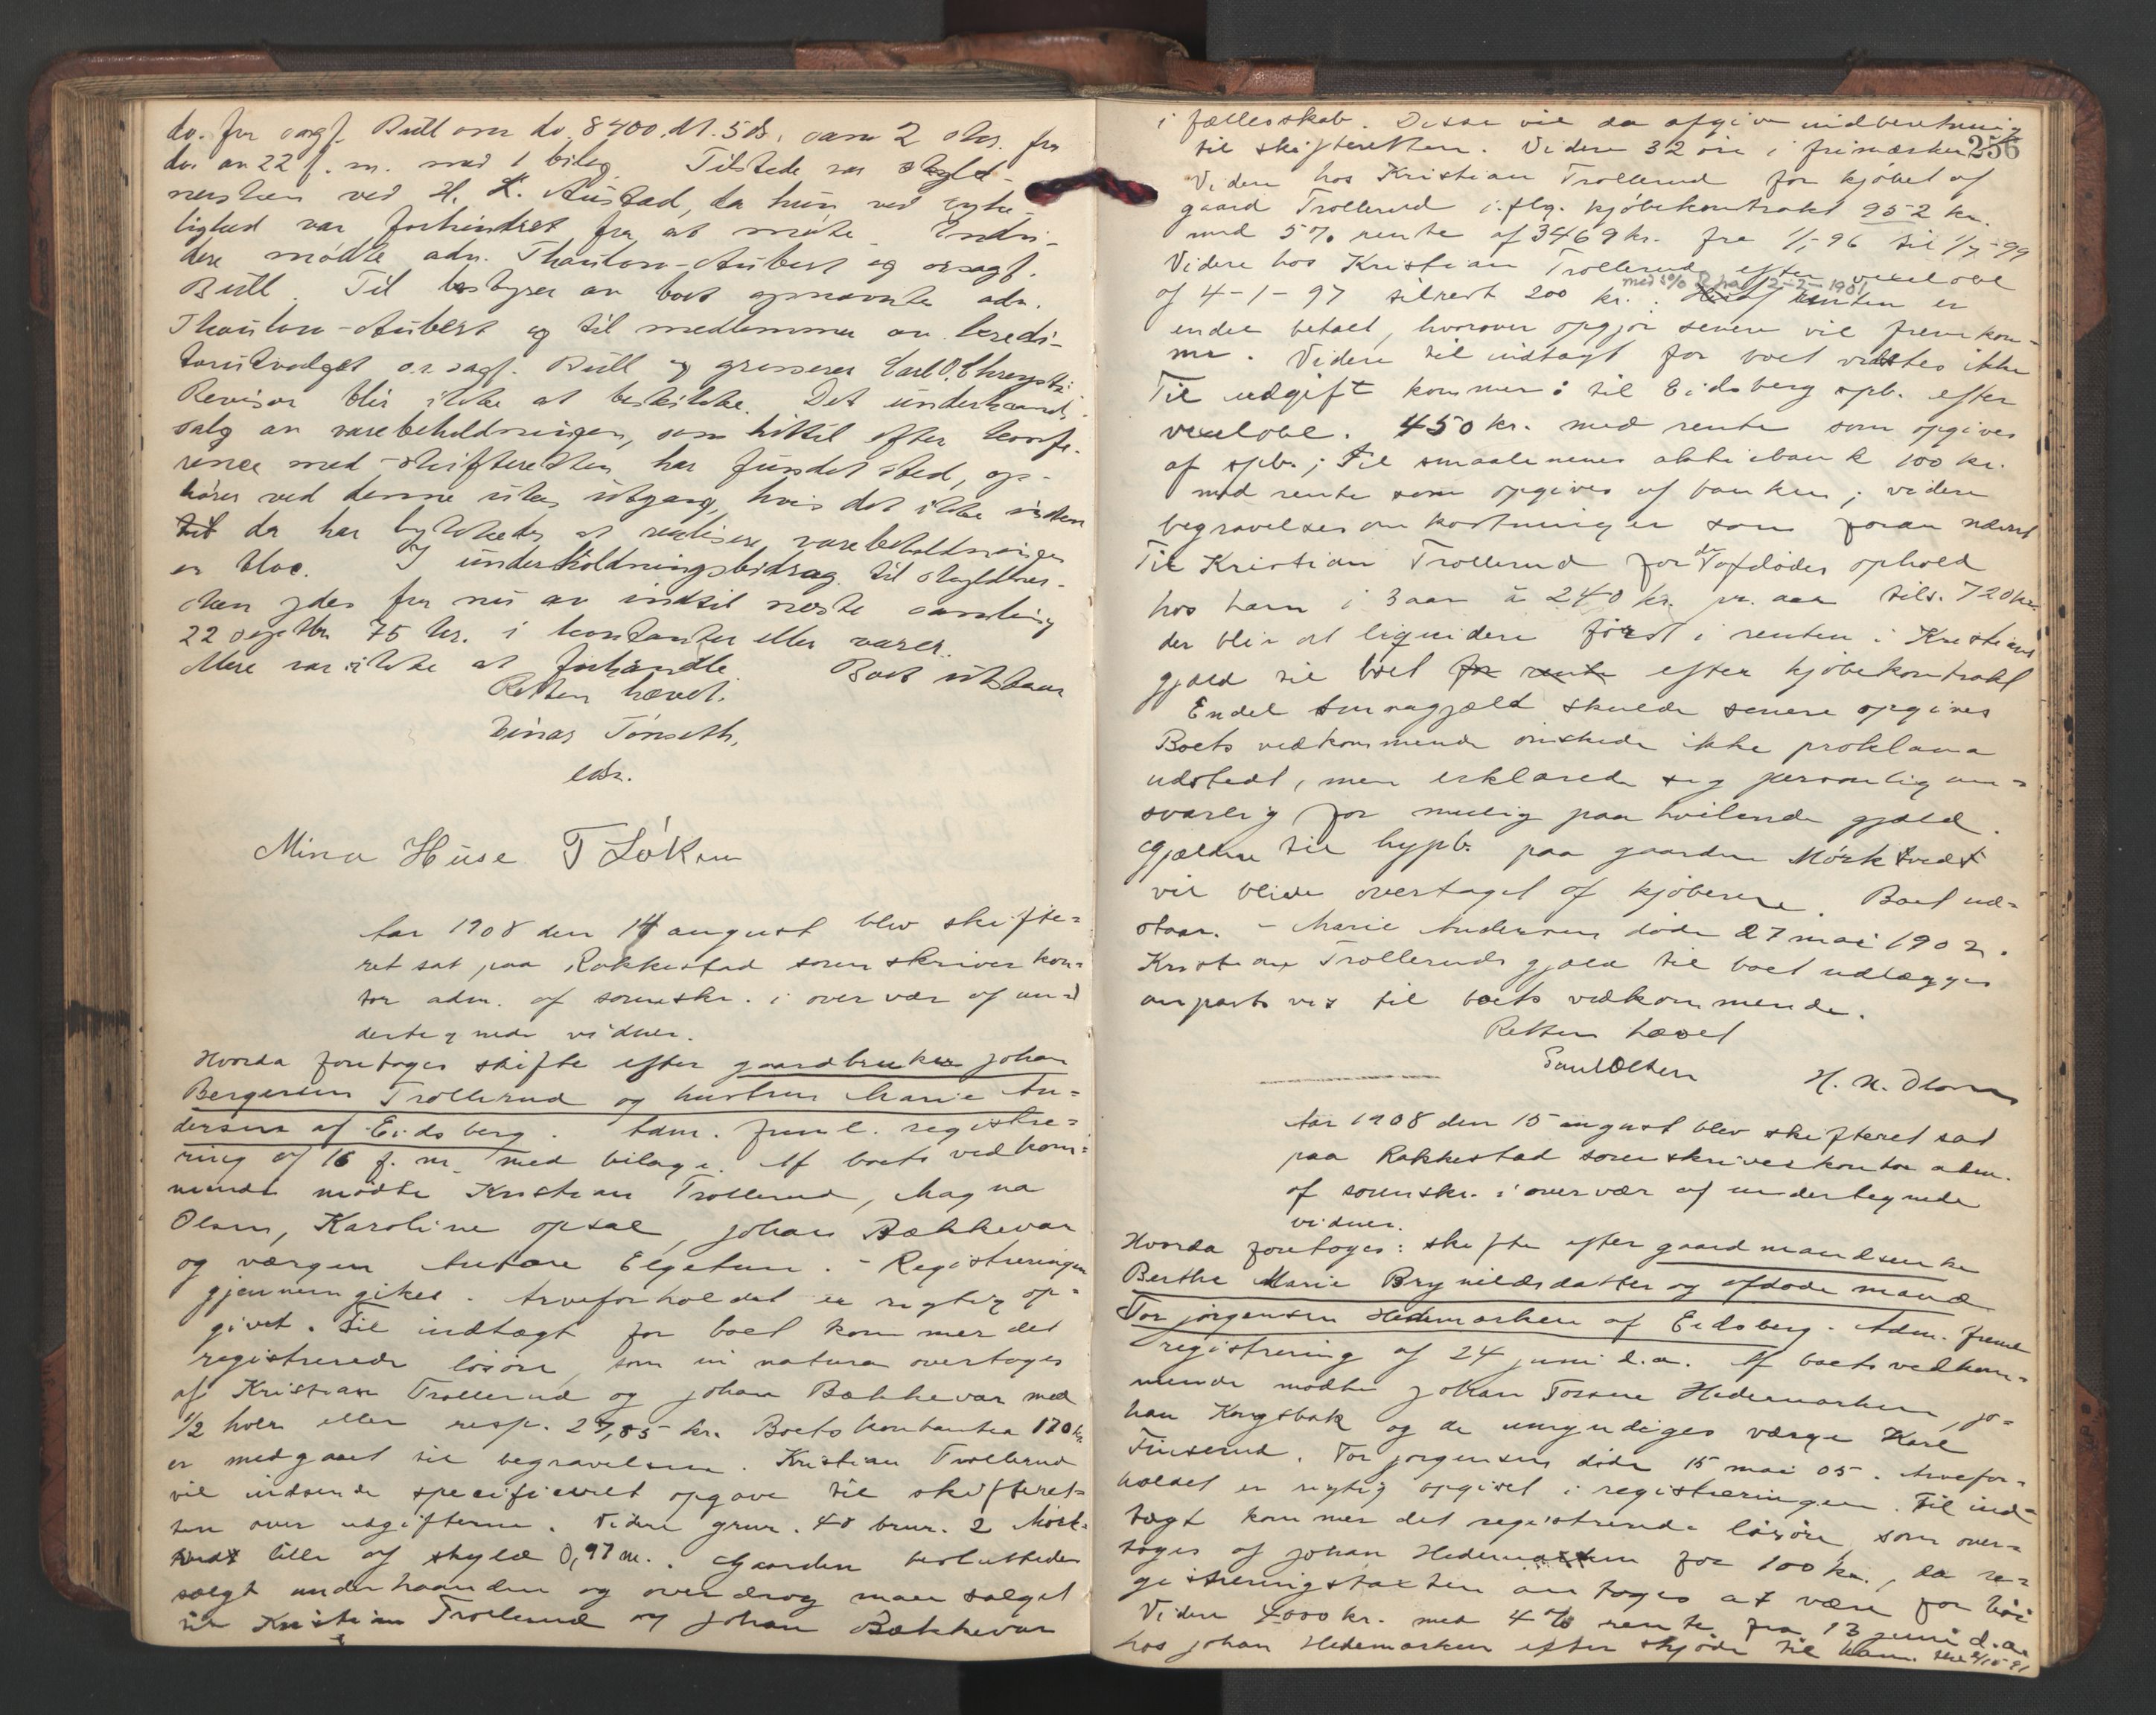 do. fra orsagf. Bull om do. 8400 M. 5 ds. samt 2 skr. fra
do. av 22 f. m. med 1 bilag. Tilstede var skyld-
nersken ved H. K. Austad, da hun ved syke-
lighed var forhindret fra at møte. Endvi-
dere mødte adv. Thaulow-Aubert og orsagf.
Bull. Til bestyrer av boet opnævntes adv.
Thaulow-Aubert og til medlemmer av kredi-
torutvalget o.r.sagf. Bull og grosserer Carl O.
Revisor blir ikke at beskikke. Det underhaands-
salg av varebeholdningen, som hittil efter konfe-
rence med skifteretten har fundet sted, op-
hører ved denne ukes utgang, hvis det ikke inden
da har lykkedes at realisere varebeholdningen
en bloc. I underholdningsbidrag til skyldner-
sken ydes fra nu av indtil næste samling
22 septbr. 75 kr. i kontanter eller varer.
Mere var ikke at forhandle. Boet utstaar
Retten hævet.
Einar Tönseth,
edsv.
Mina Huse T Löken
Aar 1908 den 14 august blev skifte=
ret sat paa Rakkestad sorenskriverkon=
tor adm. af sorenskr. i overvær af un=
dertegnede vidner.
Hvorda foretoges skifte efter gaardbruker Johan
Bergersen Trollerud og hustru Marie An=
dersen af Eidsberg. Adm. freml. registre=
ring af 16 f. m. med bilage. Af boets vedkom=
mende mødte Kristian Trollerud, Magna
Olsen, Karoline Opsal, Johan Bækkevar
og værgen Antore Elgetun. - Registreringen
gjennemgikes. Arveforholdet er rigtig op=
givet. Til indtægt for boet kommer det
registrerede løsøre, som in natura overtoges
af Kristian Trollerud og Johan Bækkevar med
1/2 hver eller resp. 27,85 kr. Boets kontanter 170 kr.
er medgaaet til begravelsen. Kristian Trollerud
vil indsende specificeret opgave til skifteret=
ten over udgifterne. Videre grnr. 40 brnr. 2 Mørk=
tvedt lille af skyld 0,97 m. Gaarden besluttedes
solgt underhaanden og overdrog man salget
til Kristian Trollerud og Johan Bækkevar
256
i fællesskab. Disse vil da afgive indberetning
til skifteretten. Videre 32 øre i frimærker
Videre hos Kristian Trollerud for kjøbet af
gaard Trollerud i.flg. kjøbekontrakt 952 kr.
med 5% rente af 3469 kr. fra 1/1-96 til 1/7-99
Videre hos Kristian Trollerud efter vexelobl
med 5% R fra 12-2-1901
af 4-1-97 tilrest 200 kr. Heraf renten er
endel betalt, hvorover opgjør senere vil fremkom-
me. Videre til indtægt for boet vidstes ikke
Til udgift kommer: til Eidsberg spb. efter
vexelobl. 450 kr. med rente som opgives
af spb.; til smaalenenes aktiebank 100 kr.
med rente som opgives af banken; videre
begravelsesomkostninger som foran nævnt
Til Kristian Trollerud for de afdødes ophold
hos ham i 3 aar à 240 kr. pr. aar tils. 720 kr.
der blir at liquidere først i renten i Kristians
gjæld til boet for rente efter kjøbekontrakt
Endel smaagjæld skulde senere opgives
Boets vedkommende ønskede ikke proklama
udstedt, men erklærede sig personlig an=
svarlig for mulig paahvilende gjæld.
Gjælden til hypb. paa gaarden Mørktvedt
vil blive overtaget af kjøberne. Boet ud=
staar. - Marie Andersen døde 27 mai 1902.
Kristian Trolleruds gjæld til boet udlægges
anpartsvis til boets vedkommende.
Retten hævet
Paul Olsen H. N. Olsen
Aar 1908 den 15 august blev skifteret sat
paa Rakkestad sorenskriverkontor adm.
af sorenskr. i overvær af undertegnede
vidner.
Hvorda foretoges: skifte efter gaardmandsenke
Berthe Marie Brynildsdatter og afdøde mand
Tor Jørgensen Hedemarken af Eidsberg. Adm. freml
registrering af 24 juni d.a. Af boets vedkom=
mende mødte Johan Torsen Hedemarken, Jo=
han Kongsbak og de umyndiges værge Karl
Finserud. Tor Jørgensen døde 15 mai 05. Arvefor=
holdet er rigtig opgivet i registreringen. Til ind=
tægt kommer det registrerede løsøre, som over=
toges af Johan Hedemarken for 100 kr., da re=
gistreringstaxten antoges at være for høi
Videre 4000 kr. med 4% rente fra 13 juni d.a.
hos Johan Hedemarken efter skjøde til ham